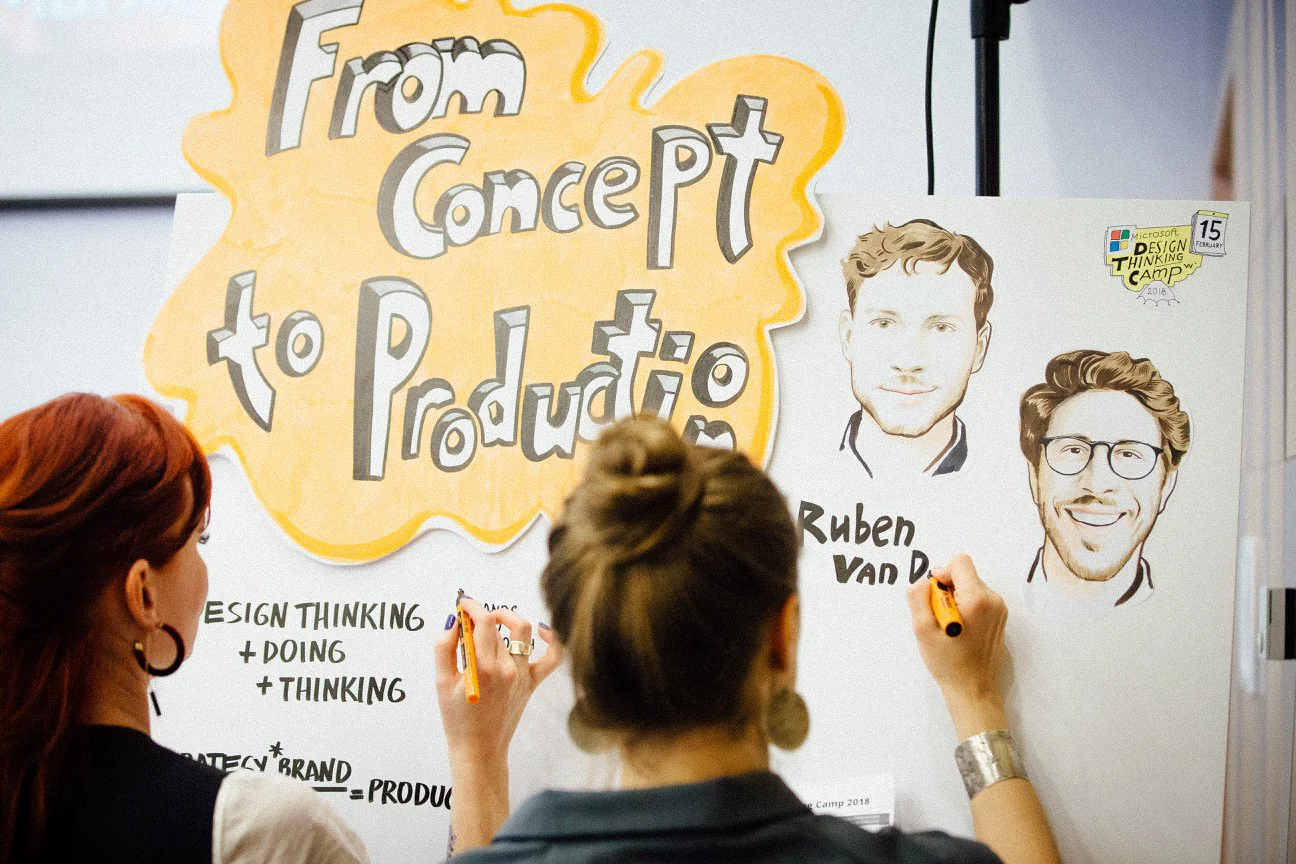 From
Concept
to Production
Microsoft
DESIGN
THINKING
CAMP
2018
15
FEBRUARY
Ruben
VAN D
ESIGN THINKING
+ DOING
+ THINKING
BRAND
= PRODUC
Camp 2018